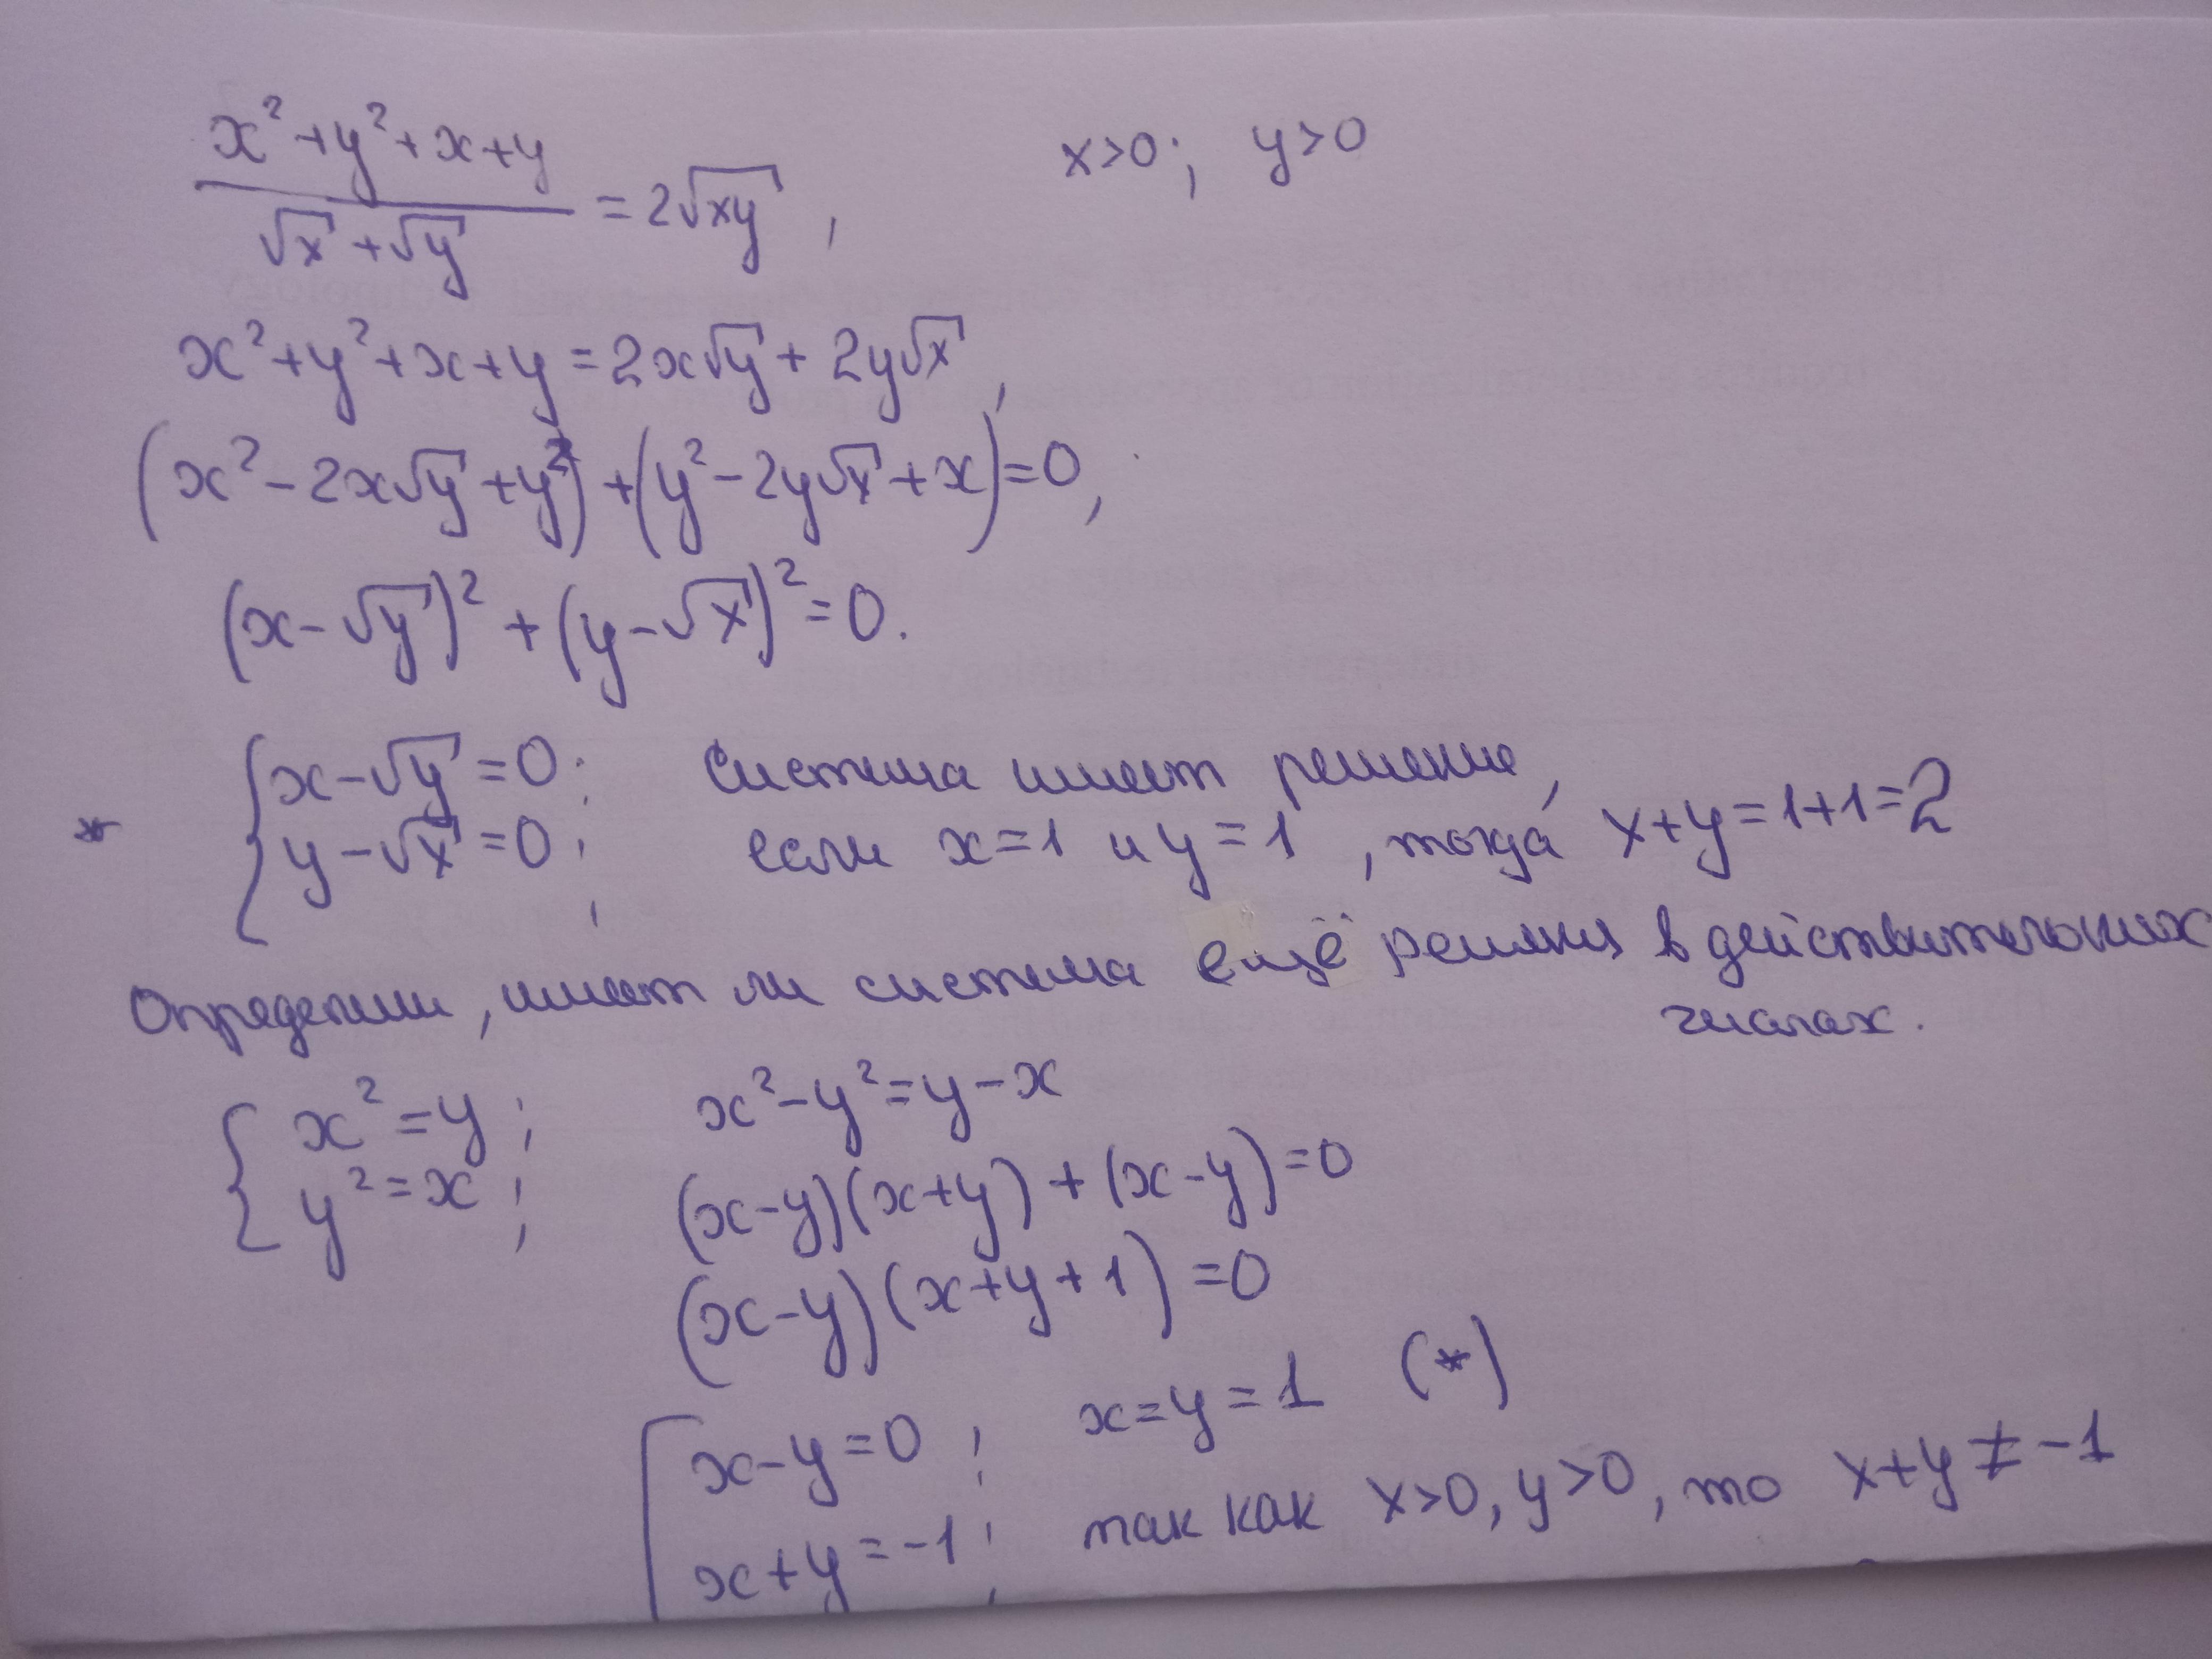 (x²+y²+x+y)/(√x+√y) = 2√xy, x>0; y>0
x²+y²+x+y=2x√y+2y√x,
(x²-2x√y+y²)+(y²-2y√x+x)=0,
(x-√y)²+(y-√x)²=0.
{x-√y=0; Система имеет решение,
* y-√x=0; если x=1 и y=1, тогда x+y=1+1=2
Определим, имеет ли система ещё решения в действительных
числах.
{x²=y; x²-y²=y-x
y²=x; (x-y)(x+y)+(x-y)=0
(x-y)(x+y+1)=0
[x-y=0; x=y=1 (*)
x+y=-1; так как x>0, y>0, то x+y≠-1